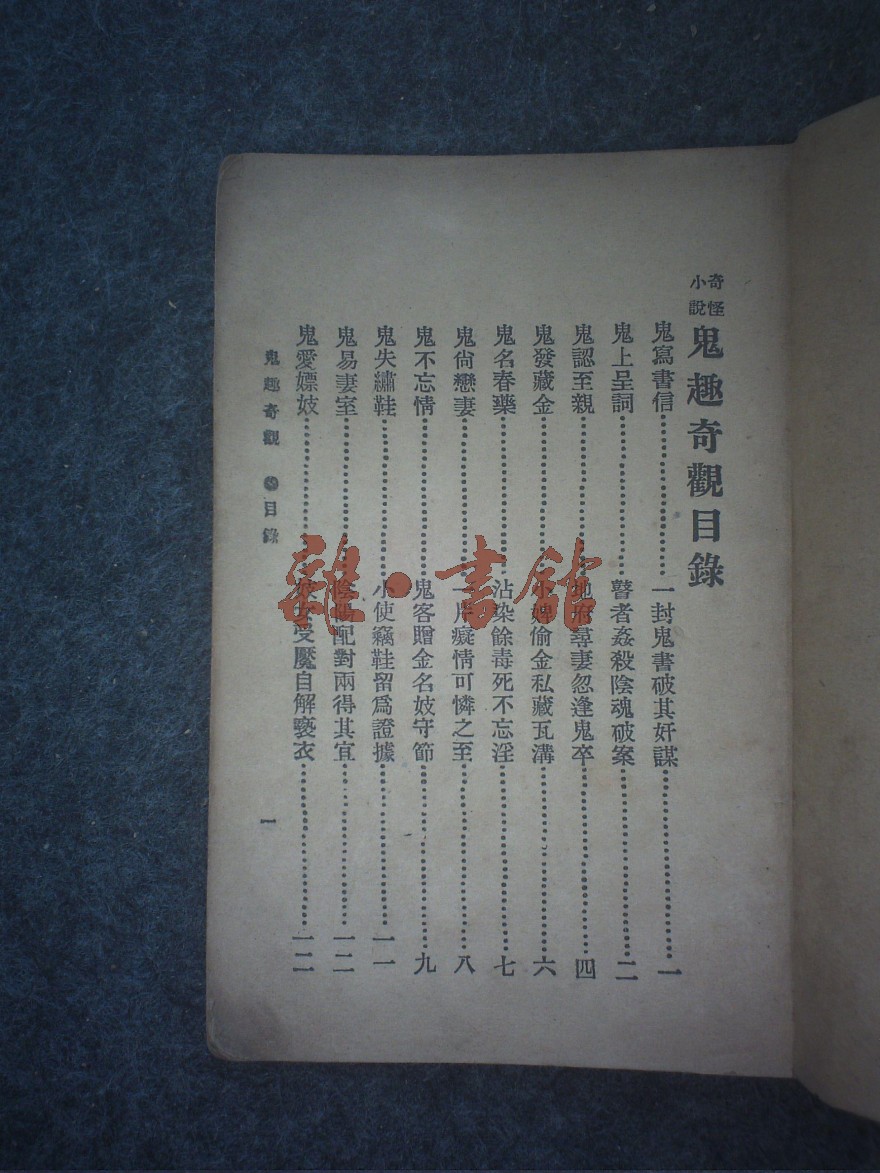 奇怪小說 鬼趣奇觀目錄
鬼寫書信……一封鬼書破其奸謀……一
鬼上呈詞……瞽者姦殺陰魂破案……二
鬼認至親……地府尋妻忽逢鬼卒……四
鬼發藏金……小婢偷金私藏瓦溝……六
鬼名春藥……沾染餘毒死不忘淫……七
鬼尙戀妻……一片癡情可憐之至……八
鬼不忘情……鬼客贈金名妓守節……九
鬼失繡鞋……小使竊鞋留爲證據……一一
鬼易妻室……陰陽配對兩得其宜……一二
鬼愛嫖妓……妓女受魘自解褻衣……一二
鬼趣奇觀 目錄
一
雜·書館